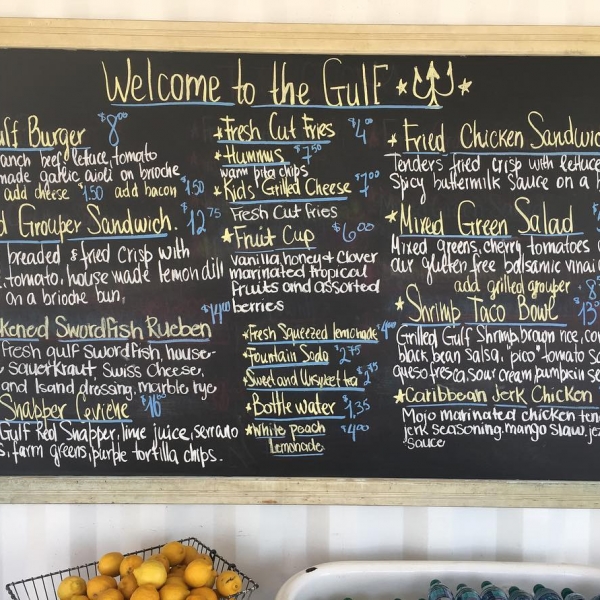 Welcome to the Gulf
Burger $8.00
ranch beef, lettuce, tomato
made garlic aioli on brioche
add cheese $1.50 add bacon $1.50
Grouper Sandwich. $12.75
breaded & fried crisp with
tomato, house made lemon dill
on a brioche bun,
Swordfish Rueben $14.00
fresh gulf swordfish, house-
sauerkraut Swiss cheese,
and Island dressing, marble rye
Snapper Ceviche $10
Gulf Red Snapper, lime juice, serrano
farm greens, purple tortilla chips.
Fresh Cut Fries $4.00
Hummus $7.50
warm pita chips
Kids Grilled Cheese $7.00
Fresh Cut fries
Fruit Cup $6.00
vanilla, honey & clover
marinated tropical
fruits and assorted
berries
Fresh Squeezed lemonade $4.00
Fountain Soda $2.75
Sweet and Unsweet tea $2.75
Bottle water $1.35
White peach $4.00
Lemonade
Fried Chicken
Tenders fried crisp with
Spicy buttermilk sauce on a
Mixed Green Salad
Mixed greens, cherry tomatoes
our gluten free balsamic
add grilled grouper
Shrimp Taco Bowl
Grilled Gulf Shrimp, brown rice,
black bean salsa, pico, tomato
queso fresca, sour cream, pumpkin
Caribbean Jerk Chicken
Mojo marinated chicken
jerk seasoning, mango slaw,
sauce